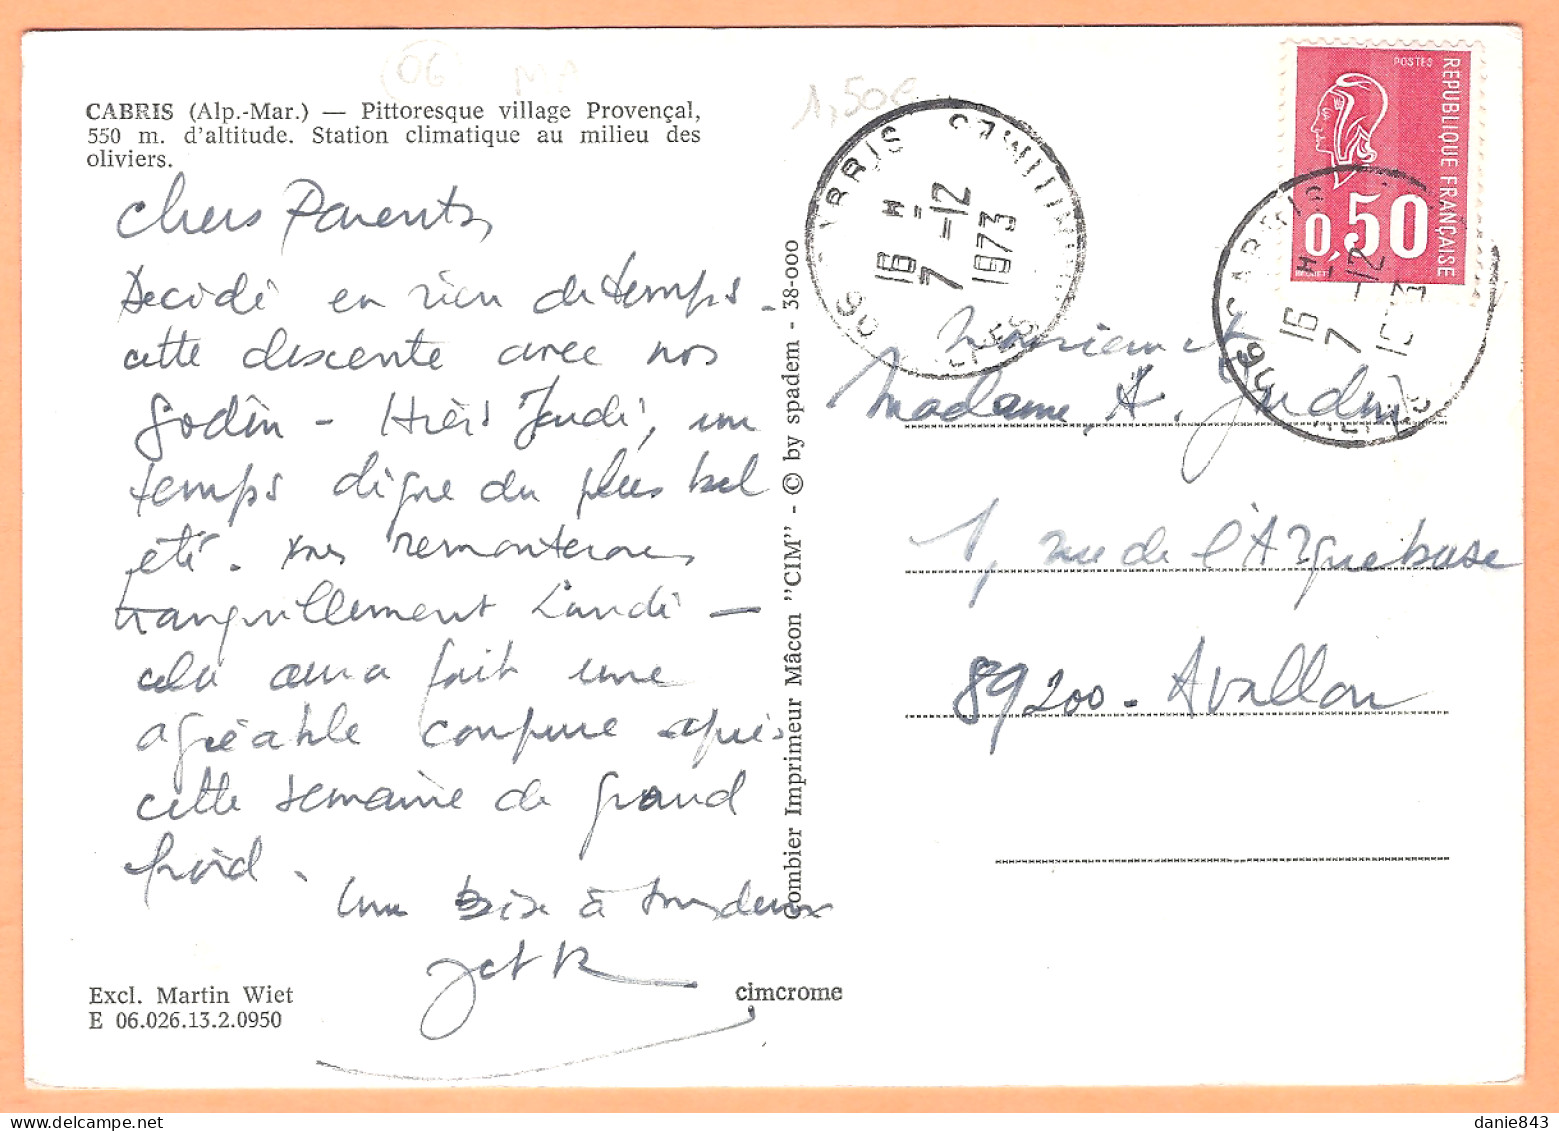 06
1,50€
CABRIS (Alp.-Mar.) — Pittoresque village Provençal,
550 m. d'altitude. Station climatique au milieu des
oliviers.
Chers Parents
Décidé en rien de temps -
cette descente avec nos
Godin - Hier Jeudi, un
temps digne du plus bel
été. nous remonterons
tranquillement Lundi —
cela aura fait une
agréable coupure après
cette semaine de grand
froid.
Une bise à tous deux
J et R
Excl. Martin Wiet
E 06.026.13.2.0950
cimcrome
Combier Imprimeur Mâcon "CIM" - © by spadem - 38-000
CABRIS
16 H
7-12
1973
06
POSTES
REPUBLIQUE FRANÇAISE
0,50
CABRIS
16 H
7-12
1973
06
Monsieur et
Madame, A.
1, rue de l'Arquebuse
89200 - Avallon
danie843